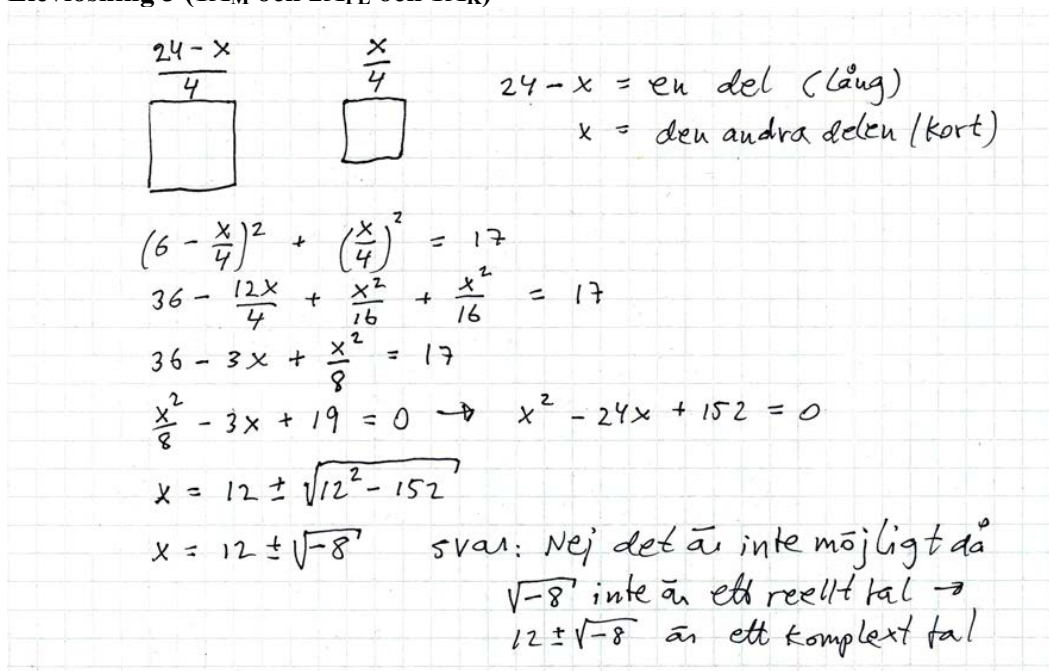 24 - x / 4    x / 4
24 - x = en del (lång)
x = den andra delen (kort)
(6 - x/4)² + (x/4)² = 17
36 - 12x/4 + x²/16 + x²/16 = 17
36 - 3x + x²/8 = 17
x²/8 - 3x + 19 = 0 → x² - 24x + 152 = 0
x = 12 ± √(12² - 152)
x = 12 ± √-8    svar: Nej det är inte möjligt då
√-8 inte är ett reellt tal →
12 ± √-8 är ett komplext tal